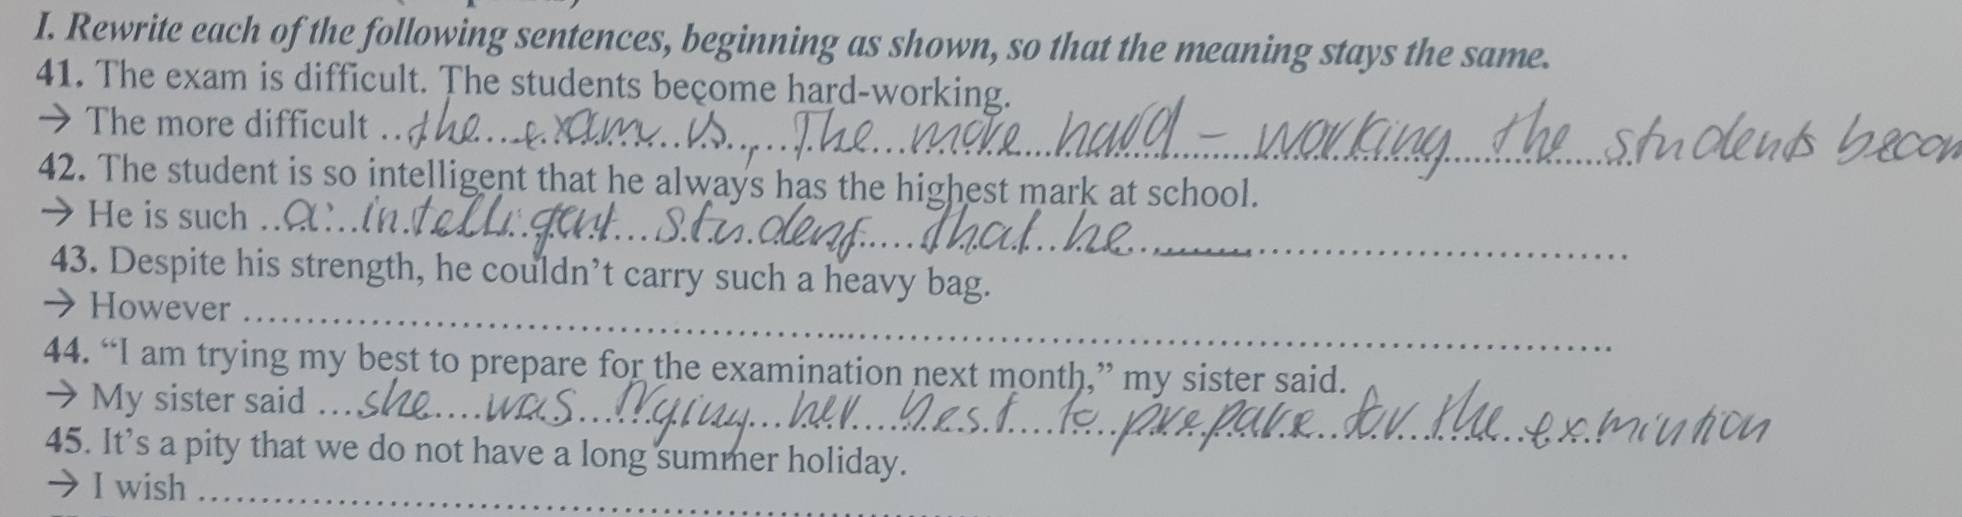 I. Rewrite each of the following sentences, beginning as shown, so that the meaning stays the same.
41. The exam is difficult. The students become hard-working.
→ The more difficult the exam is, The more hard - working the students becom
42. The student is so intelligent that he always has the highest mark at school.
→ He is such a intelligent student that he
43. Despite his strength, he couldn't carry such a heavy bag.
→ However
44. “I am trying my best to prepare for the examination next month,” my sister said.
→ My sister said she was trying her best to prepare for the exmintion
45. It's a pity that we do not have a long summer holiday.
→ I wish